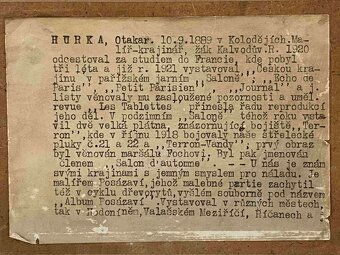 HŮRKA, Otakar. 10.9.1889 v Kolodějích. Ma-
líř-krajinář, žák Kalvodův. R. 1920
odcestoval za studiem do Francie, kde pobyl
tři léta a již r. 1921 vystavoval ,,Českou kra-
jinu v pařížském jarním ,,Saloně"; ,,Echo de
Paris", ,,Petit Parisien ,,Journal" a j.
listy věnovaly mu zasloužené pozornosti a uměl.
revue ,,Les Tablettes" přinesla řadu reprodukcí
jeho děl. V podzimním ,,Saloně" téhož roku vysta-
vil dvě velké plátna, znázorňující bojiště,,Ter-
ron",kde v říjnu 1918 bojovaly naše střelecké
pluky č.21 a 22 a ,,Terron-Vandy"; prvý obraz
byl věnován maršálu Fochovi, Byl pak jmenován
členem ,,Salon d'automne . -- U nás je znám
svými krajinami s jemným smyslem pro náladu. Je
malířem Posázaví, jehož malebné partie zachytil
též v cyklu dřevorytů, vyšlém souborně pod názvem
,,Album Posázaví .Vystavoval v různých městech,
tak v Hodoníněm, Valašském Meziříčí, Říčanech a